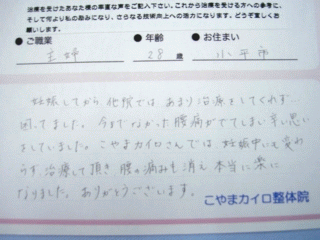 治療を受けたあなた様の率直な声をご記入下さい。これから治療を受ける方への参考に、
そして何より私の励みになり、さらなる技術向上への活力になります。どうぞ宜しくお
願いします。
●ご職業 ●年齢 ●お住まい
主婦 28 歳 小平市
妊娠してから他院ではあまり治療をしてくれず…
困ってました。今までなかった腰痛がでてしまい辛い思い
をしていました。こやまカイロさんでは妊娠中でも変わ
らず治療して頂き腰の痛みも消え本当に楽に
なりました。ありがとうございます。
こやまカイロ整体院